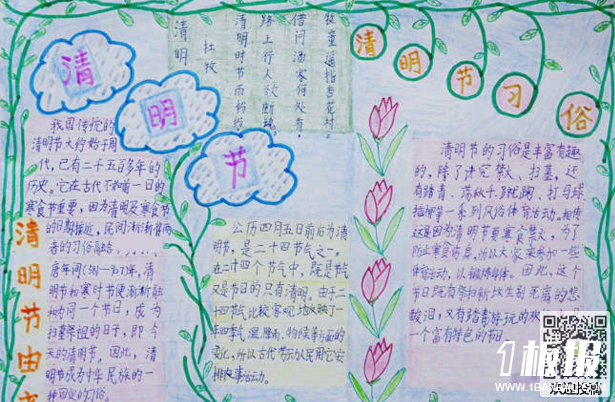 清
明
节
清明
杜牧
清明时节雨纷纷
路上行人欲断魂
借问酒家何处有
牧童遥指杏花村
清明节习俗
我国传统的
清明节大约始于周
代,已有二千五百多年的
历史。它在古代不如前一日的
寒食节重要,因为清明及寒食节
的日期接近,民间渐渐将两
者的习俗融合
唐年间(581—907年),清
明和寒时节便渐渐融
和为同一个节日,成为
扫墓祭祖的日子,即今
天的清明节。因此,清
明节成为中华民族的一
种固定的习俗。
清明节由
公历四月五日前后为清
明节,是二十四节气之一。
在二十四个节气中,既是节气
又是节日的只有清明。由于二
十四节气比较客观地反映了一
年四季气温、降雨、物候等方面的
变化,所以古代劳动人民用它安
排农事活动。
清明节的习俗是丰富有趣
的,除了讲究禁火、扫墓,还
有踏青、荡秋千、蹴鞠、打马球、
插柳等一系列风俗体育活动。相传
这是因为清明节要寒食禁火,为了
防止寒食伤身,所以大家来参加一些
体育活动,以锻炼身体。因此,这个
节日既有祭扫新坟生别死离的悲
酸泪,又有踏青好玩的欢
一个富有特色的节日
1板报
WWW.1BANBAO.COM
欢迎投稿